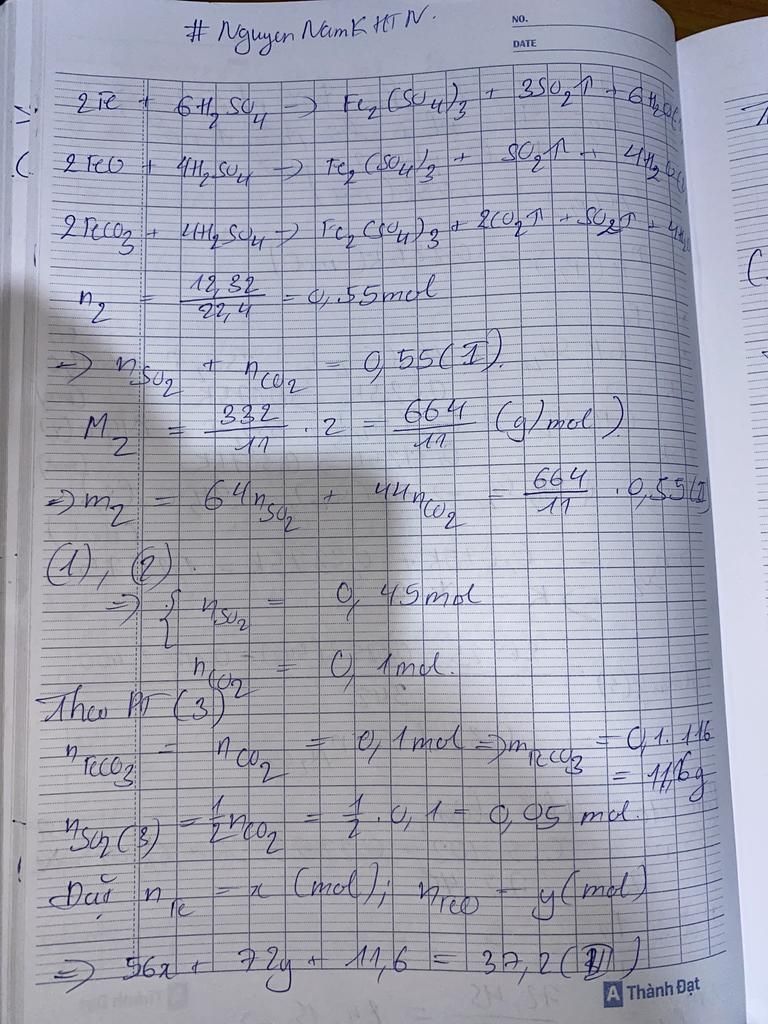 # Nguyen Nam KHTN.
NO.
DATE
2Fe + 6H₂SO₄ → Fe₂(SO₄)₃ + 3SO₂↑ + 6H₂O
2FeO + 4H₂SO₄ → Fe₂(SO₄)₃ + SO₂↑ + 4H₂O
2FeCO₃ + 4H₂SO₄ → Fe₂(SO₄)₃ + 2CO₂↑ + SO₂↑ + 4H₂
n₂ = 12,32/22,4 = 0,55mol
=> n_SO₂ + n_CO₂ = 0,55 (I).
M₂ = 332/11 . 2 = 664/11 (g/mol)
=> m₂ = 64n_SO₂ + 44n_CO₂ = 664/11 . 0,55
(1), (2).
=> { n_SO₂ = 0,45mol
n_CO₂ = 0,1mol.
Theo PT (3)
n_FeCO₃ = n_CO₂ = 0,1mol => m_FeCO₃ = 0,1.116
= 11,6g
n_SO₂(3) = 1/2 n_CO₂ = 1/2 . 0,1 = 0,05 mol.
Đặt n_Fe = x (mol); n_FeO = y (mol)
=> 56x + 72y + 11,6 = 37,2 (II)
Thành Đạt